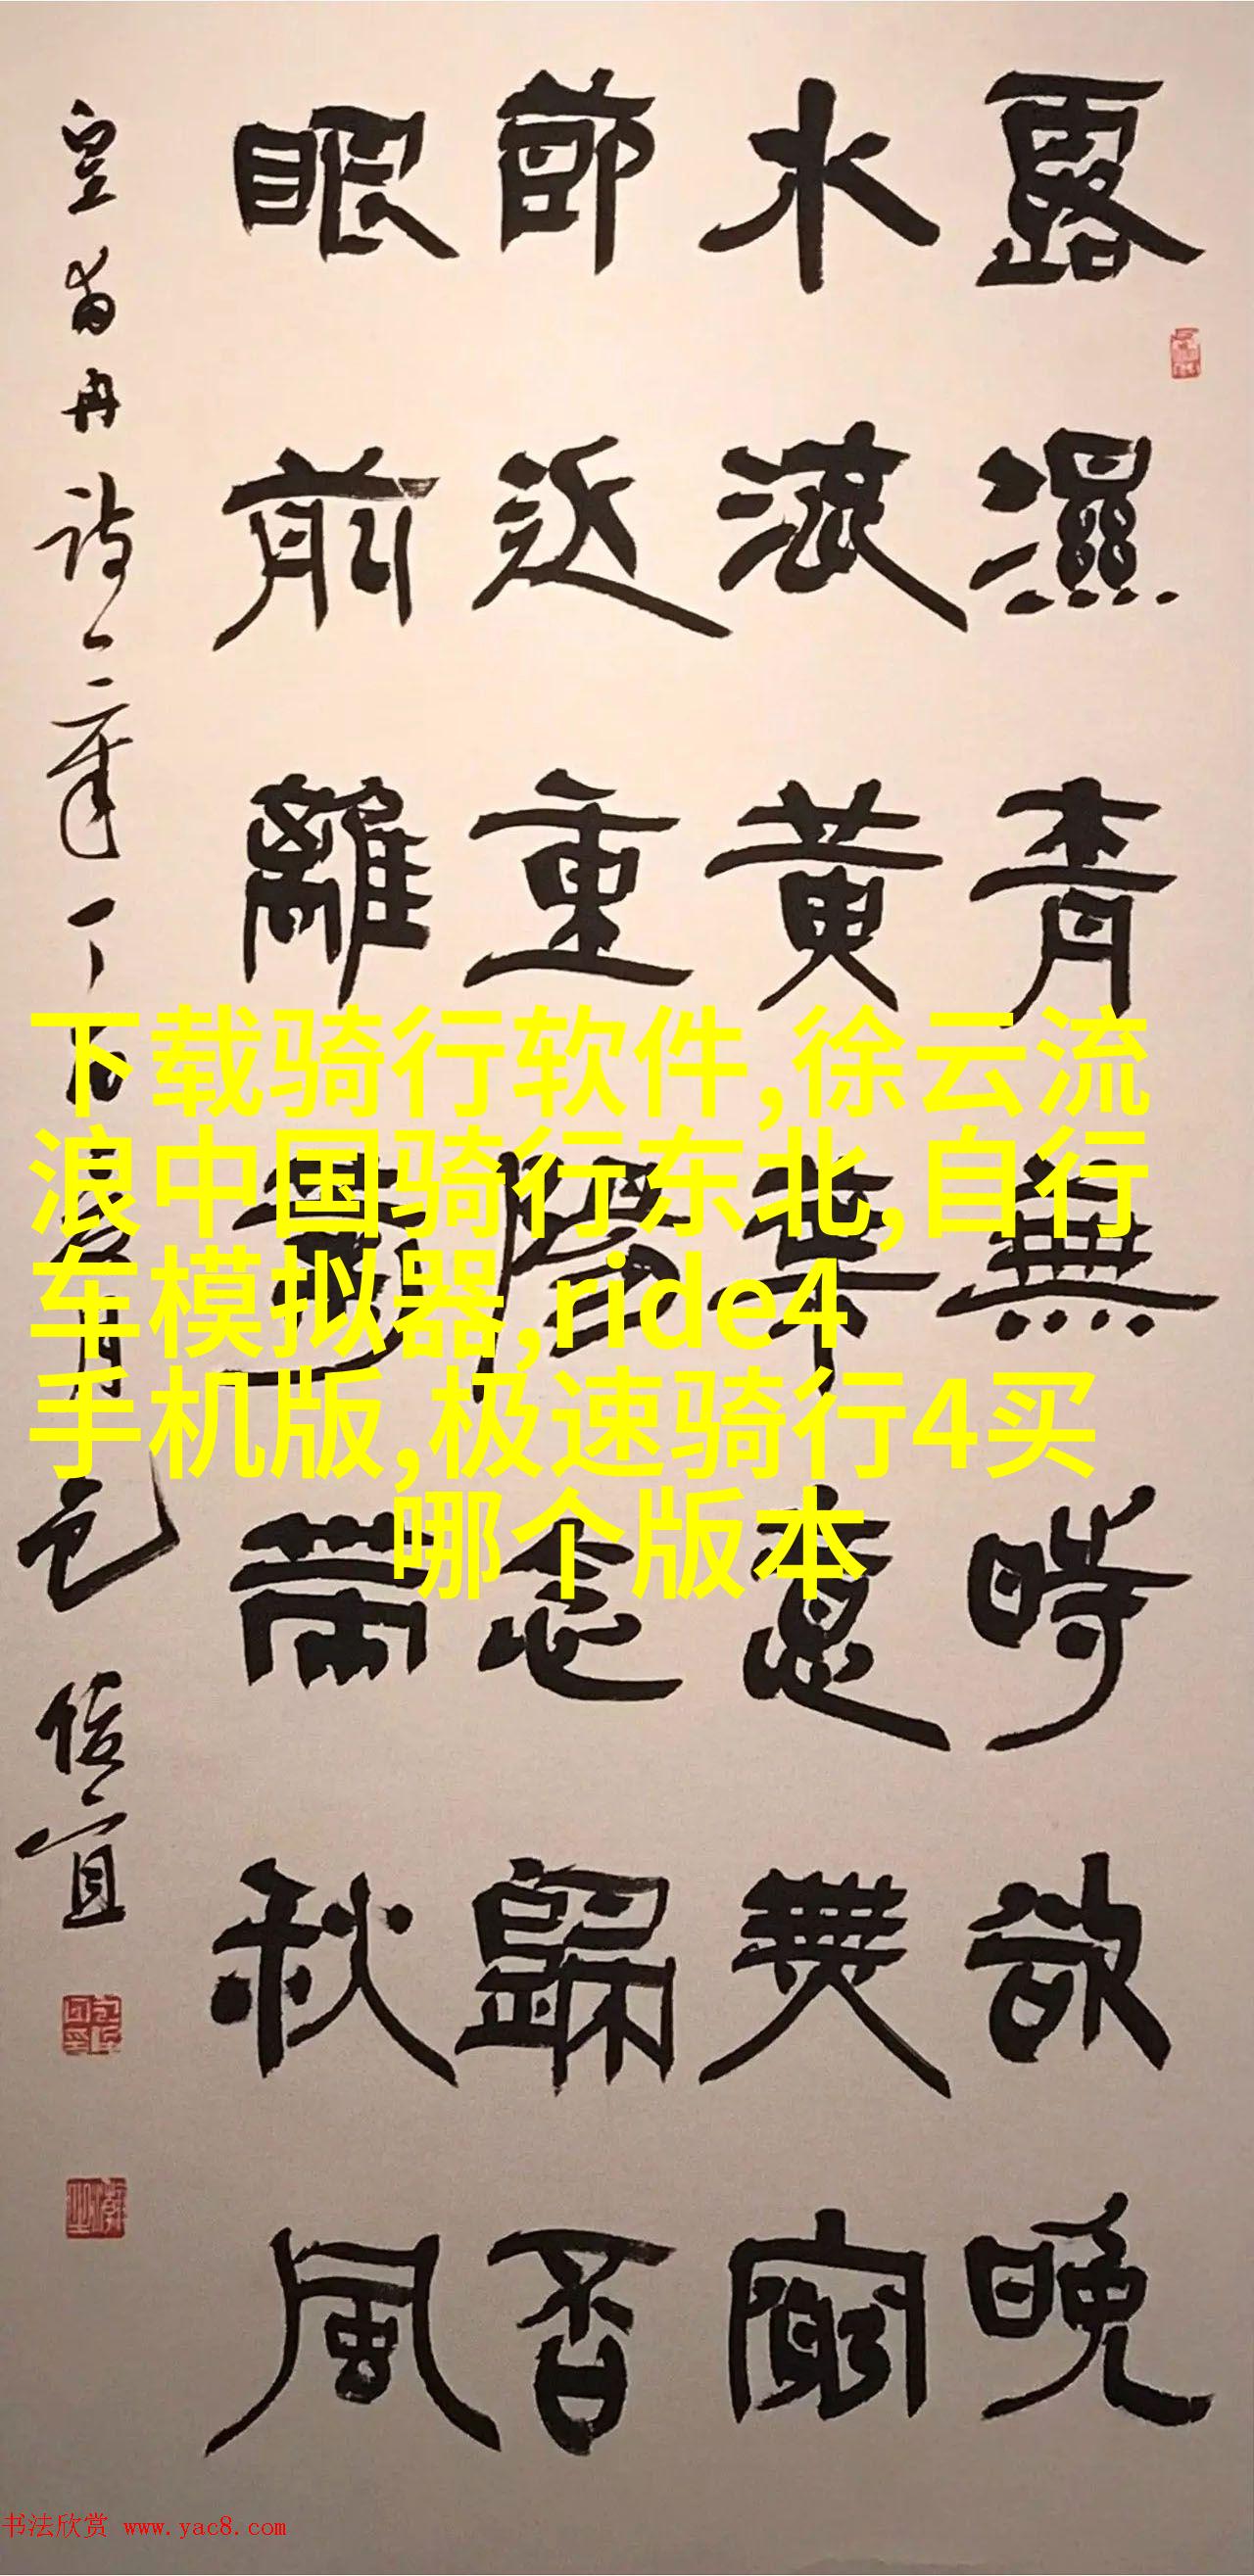 露濕青蕪時欲晚
水流黃葉意無窮
節近重陽念歸否
眼前離帶秋風
皇甫冉詩一章丁酉
下载骑行软件,徐云流
浪中国骑行东北,自行
车模拟器,ride4
手机版,极速骑行4买
哪个版本
书法欣赏 www.yac8.com